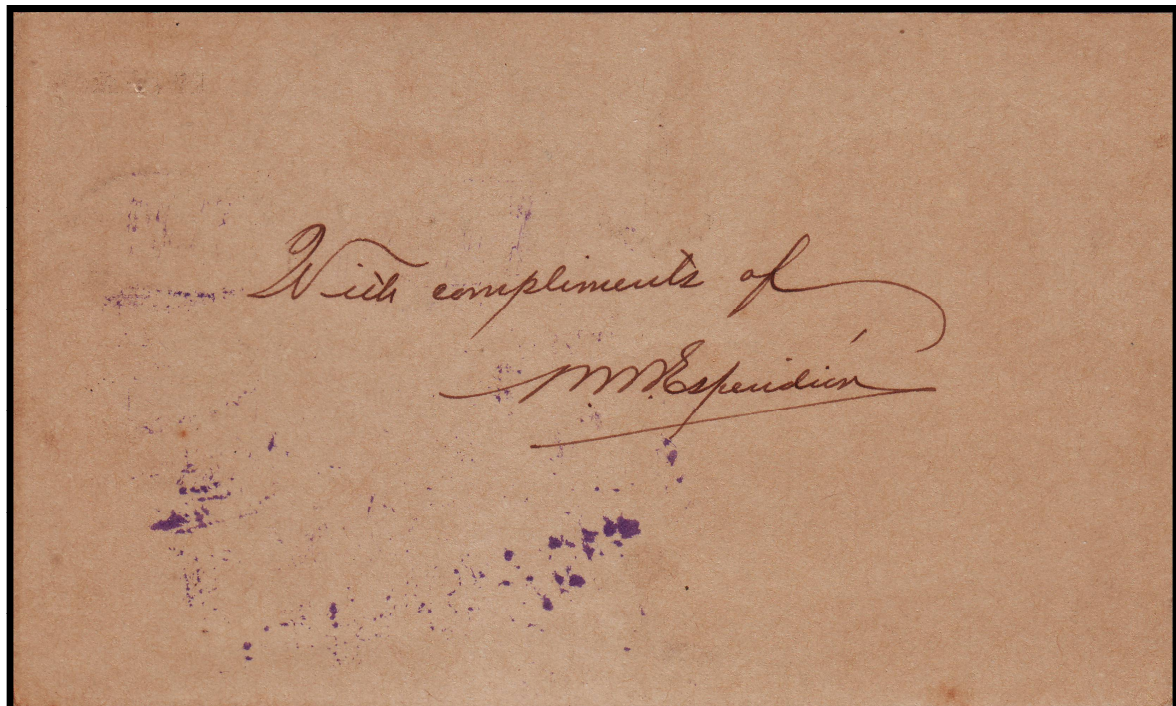 With compliments of
Esperidión